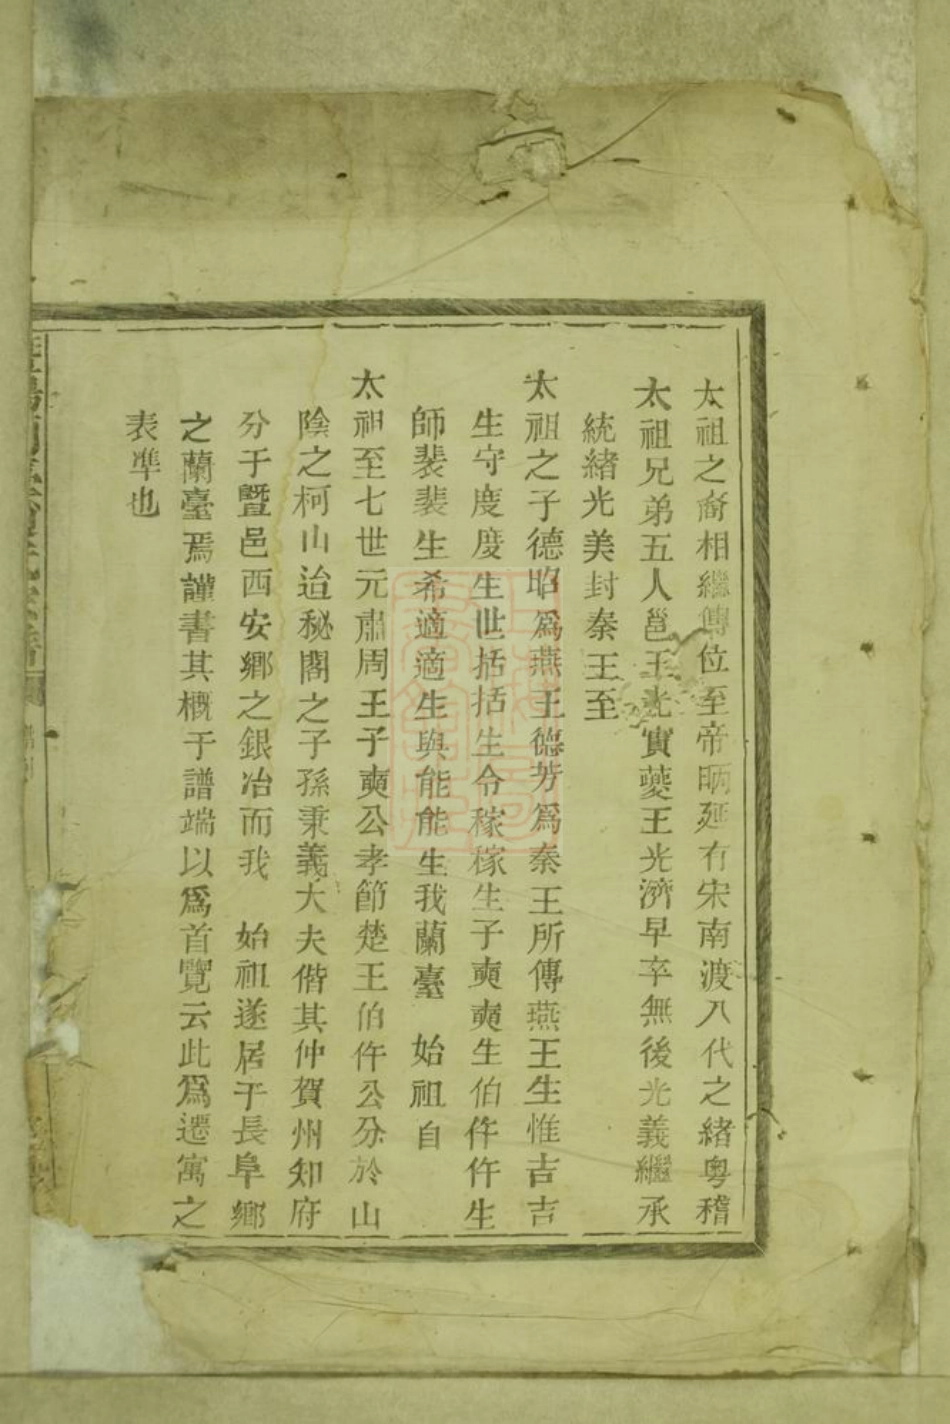 太祖之裔相繼傳位至帝昞延有宋南渡八代之緒粤稽
太祖兄弟五人邕王光實夔王光濟早卒無後光義繼承
統緒光美封秦王至
太祖之子德昭爲燕王德芳爲秦王所傳燕王生惟吉吉
生守度度生世括括生令稼稼生子奭奭生伯仵仵生
師裴裴生希適適生與能能生我蘭臺　始祖自
太祖至七世元肅周王子奭公孝節楚王伯仵公分於山
陰之柯山迨秘閣之子孫秉義大夫偕其仲賀州知府
分于暨邑西安鄉之銀冶而我　始祖遂居于長阜鄉
之蘭臺焉謹書其槪于譜端以爲首覽云此爲遷寓之
表凖也